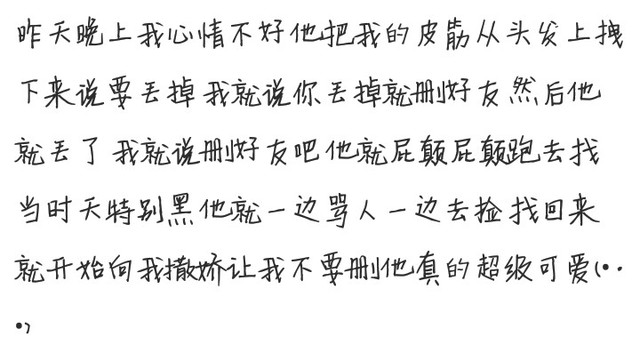 昨天晚上我心情不好他把我的皮筋从头发上拽
下来说要丢掉我就说你丢掉就删好友然后他
就丢了我就说删好友吧他就屁颠屁颠跑去找
当时天特别黑他就一边骂人一边去捡找回来
就开始向我撒娇让我不要删他真的超级可爱(••
•)